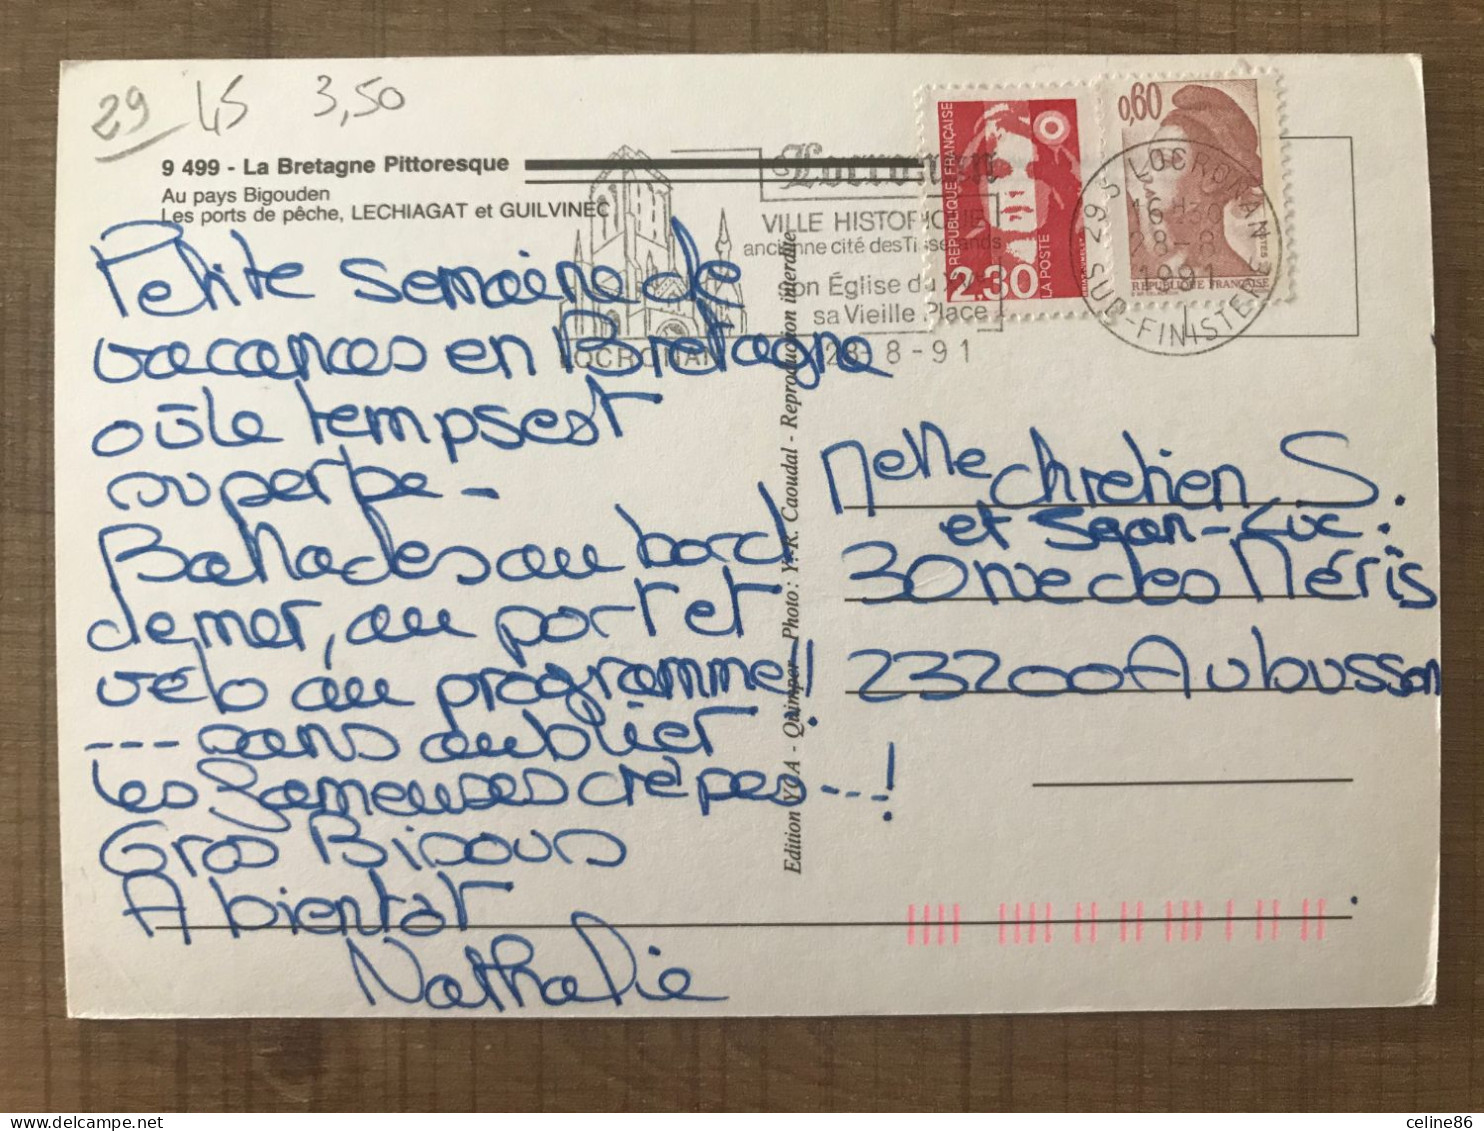 29 45 3,50
9 499 - La Bretagne Pittoresque
Au pays Bigouden
Les ports de pêche, LECHIAGAT et GUILVINEC
Petite semaine de
vacances en Bretagne
où le temps est
superbe -
Ballades au bord
de mer, au port et
vélo au programme !
--- sans oublier
les fameuses crêpes --- !
Gros Bisous
A bientôt
Nathalie
LOCRONAN
Locronan
VILLE HISTORIQUE
ancienne cité des Tisserands
son Église du XV
sa Vieille Place
28-8-91
RÉPUBLIQUE FRANÇAISE
2.30
LA POSTE
0,60
REPUBLIQUE FRANÇAISE
29 S LOCRONAN
16 H 30
28-8
1991
SUD-FINISTERE
Edition YCA - Quimper - Photo : Y.-R. Caoudal - Reproduction interdite
Melle Chretien S.
et Sgan-Luc.
30 rue des Méris
23200 Aubusson
celine86